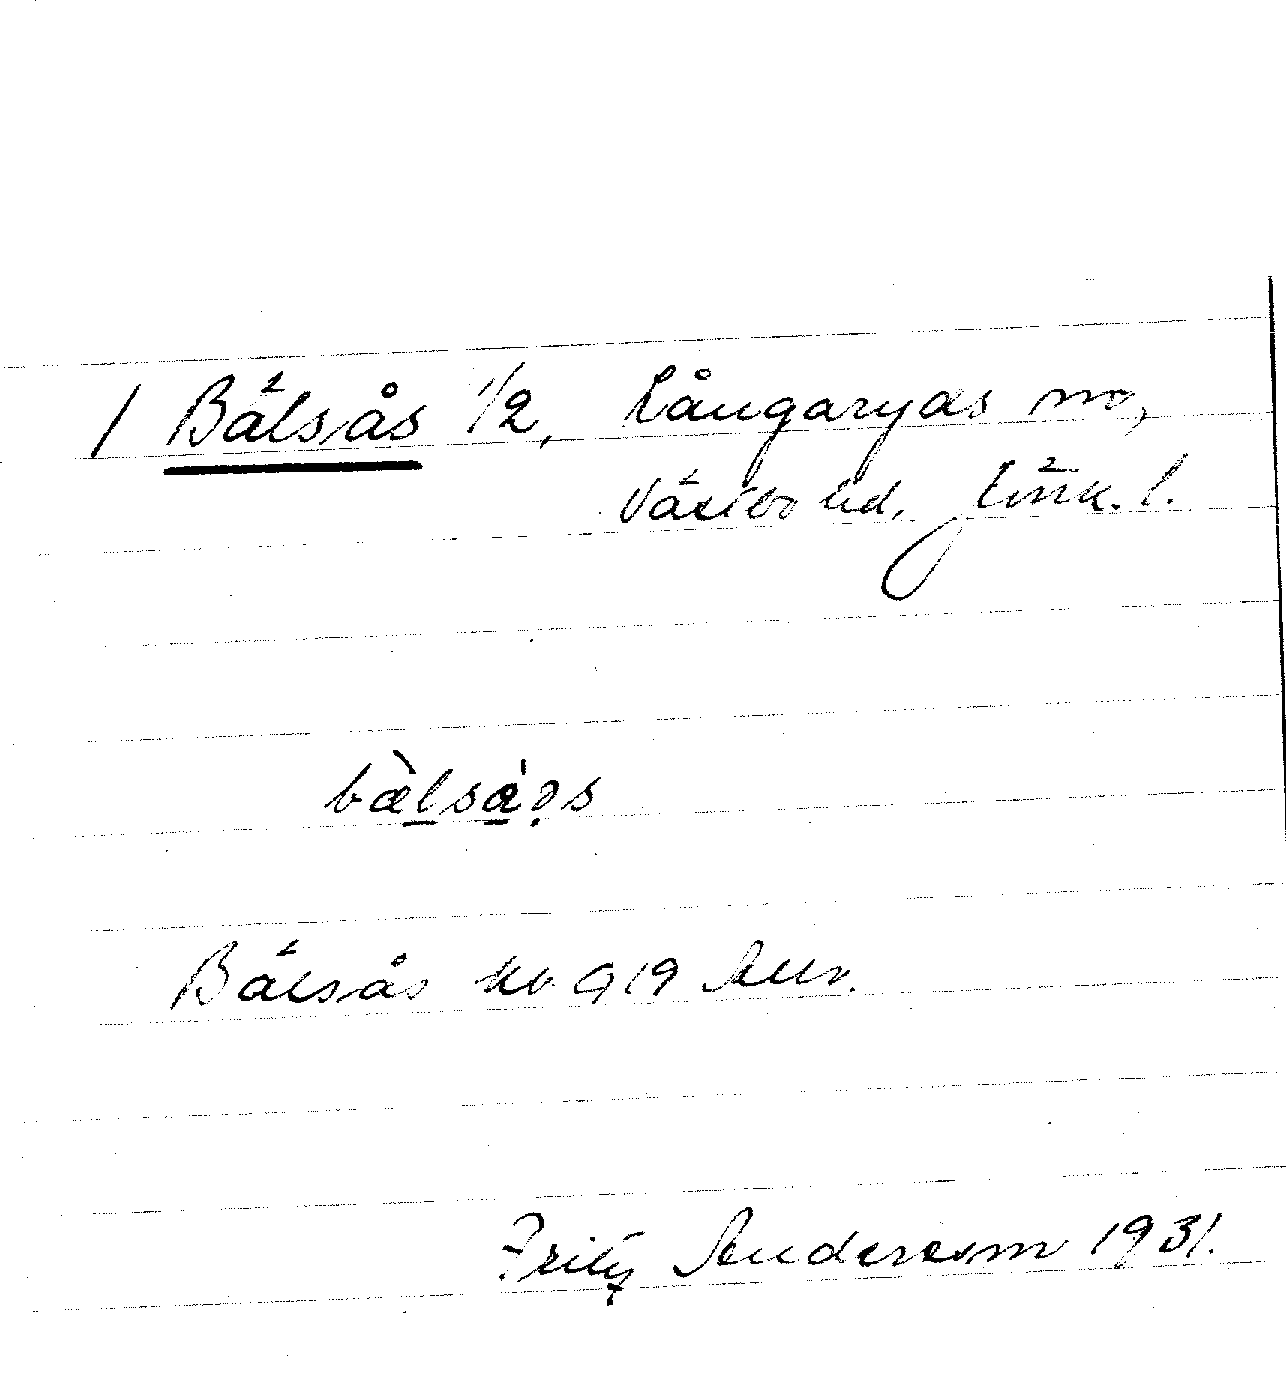 / Bälsås 1/2, Långaryds sn,
Västbo hd, Jönk. l.
bæ̀lsȧ̀ɂs
Bälsås kb 919 Allm.
Fritz Anderson 1931.